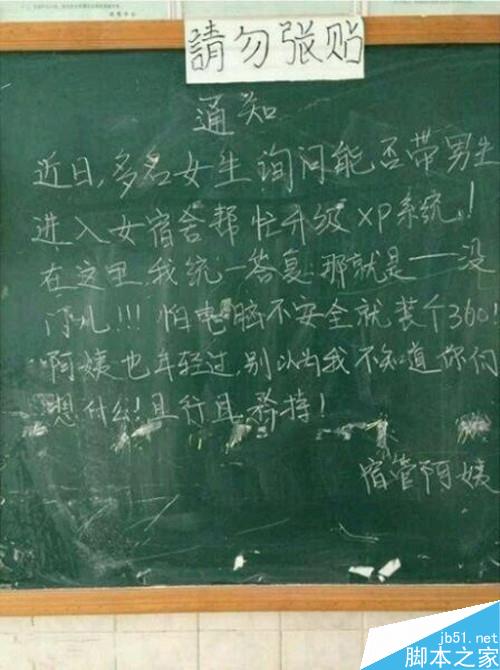 請勿张贴
通知
近日,多名女生询问能否带男生
进入女宿舍帮忙升级XP系统!
在这里我统一答复:那就是——没
门儿!!!怕电脑不安全就装个360!
阿姨也年轻过,别以为我不知道你们
想什么!且行且矜持!
宿管阿姨
jb51.net
脚本之家